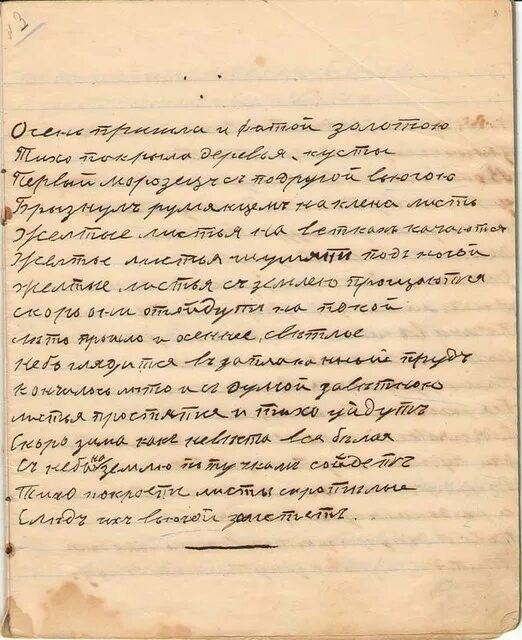 13
Осень пришла и фатой золотою
Тихо покрыла деревья кусты
Первый морозец съ подругой вьюгою
Брызнулъ румянцемъ на клена листъ
Желтые листья на веткахъ качаются
Желтые листья шумятъ подъ ногой
Желтые листья съ землею прощаются
скоро они отойдутъ на покой
лѣто прошло и осеннее, свѣтлое
Небо глядится въ заплаканный прудъ
Кончилось лѣто и съ думой завѣтною
листья простятся и тихо уйдутъ
Скоро зима какъ невѣста вся бѣлая
Съ неба на землю по тучкамъ сойдетъ
Тихо покроетъ листы
Слѣдъ ихъ вьюгой заметётъ.